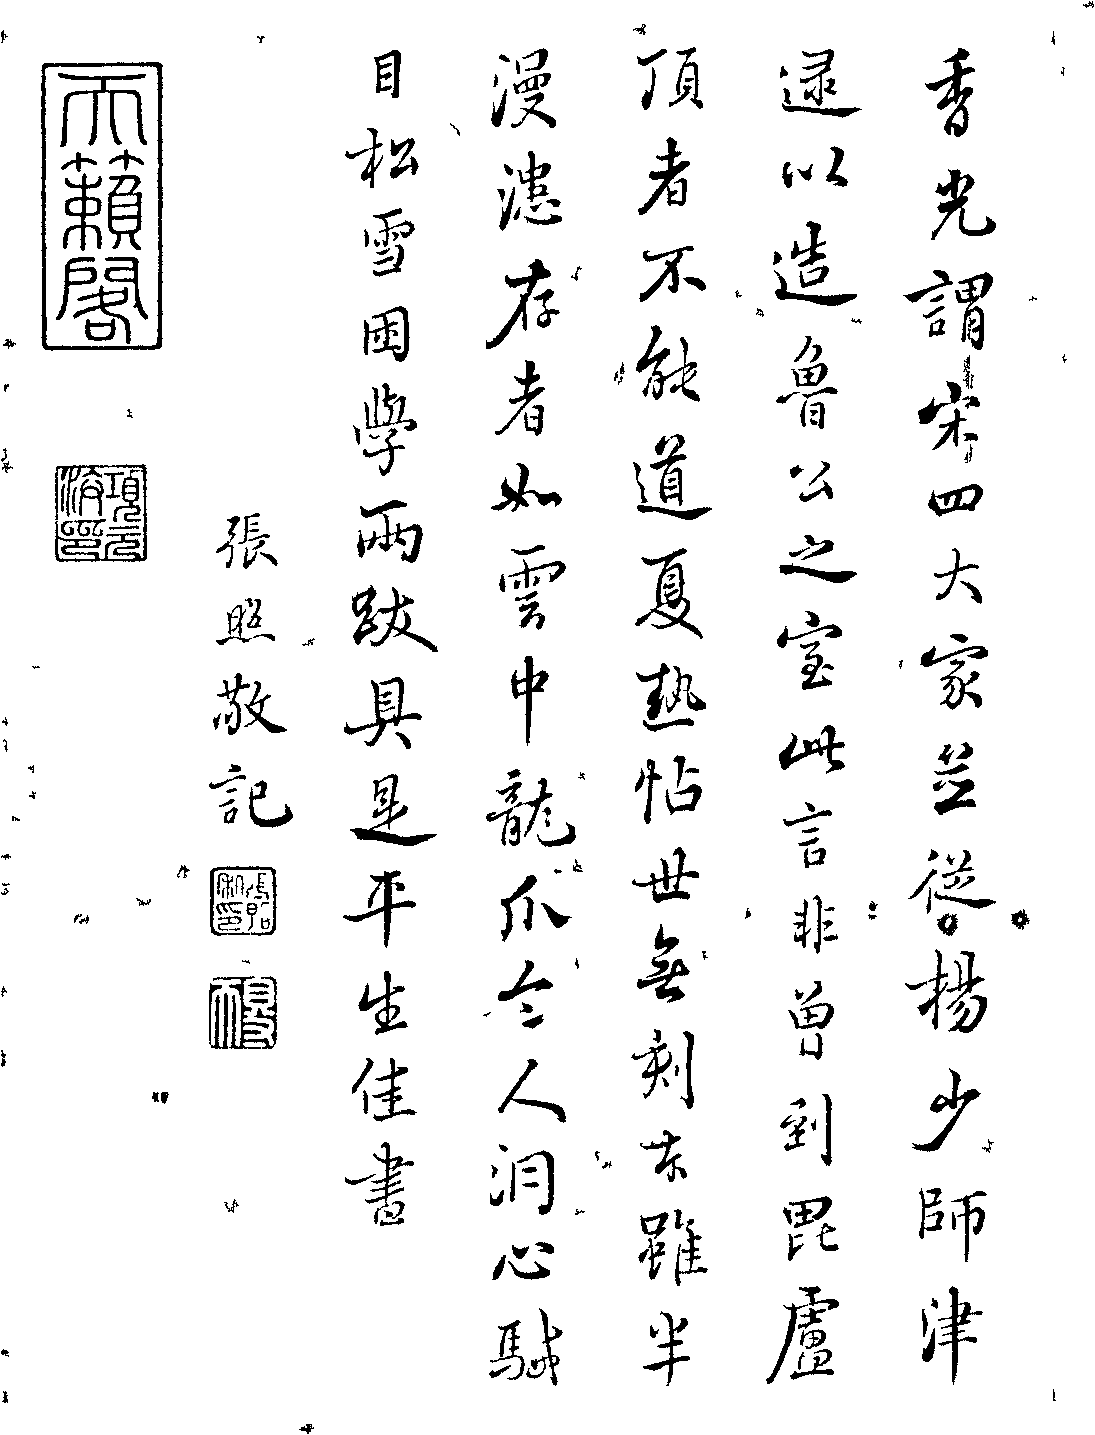 香光謂宋四大家並從楊少師津
逮以造魯公之室此言非曾到毘盧
頂者不能道夏熱帖世無刻本雖半
漫漶存者如雲中龍爪令人洞心駴
目松雪困學兩跋具是平生佳書
張照敬記
天籟閣
項元汴印